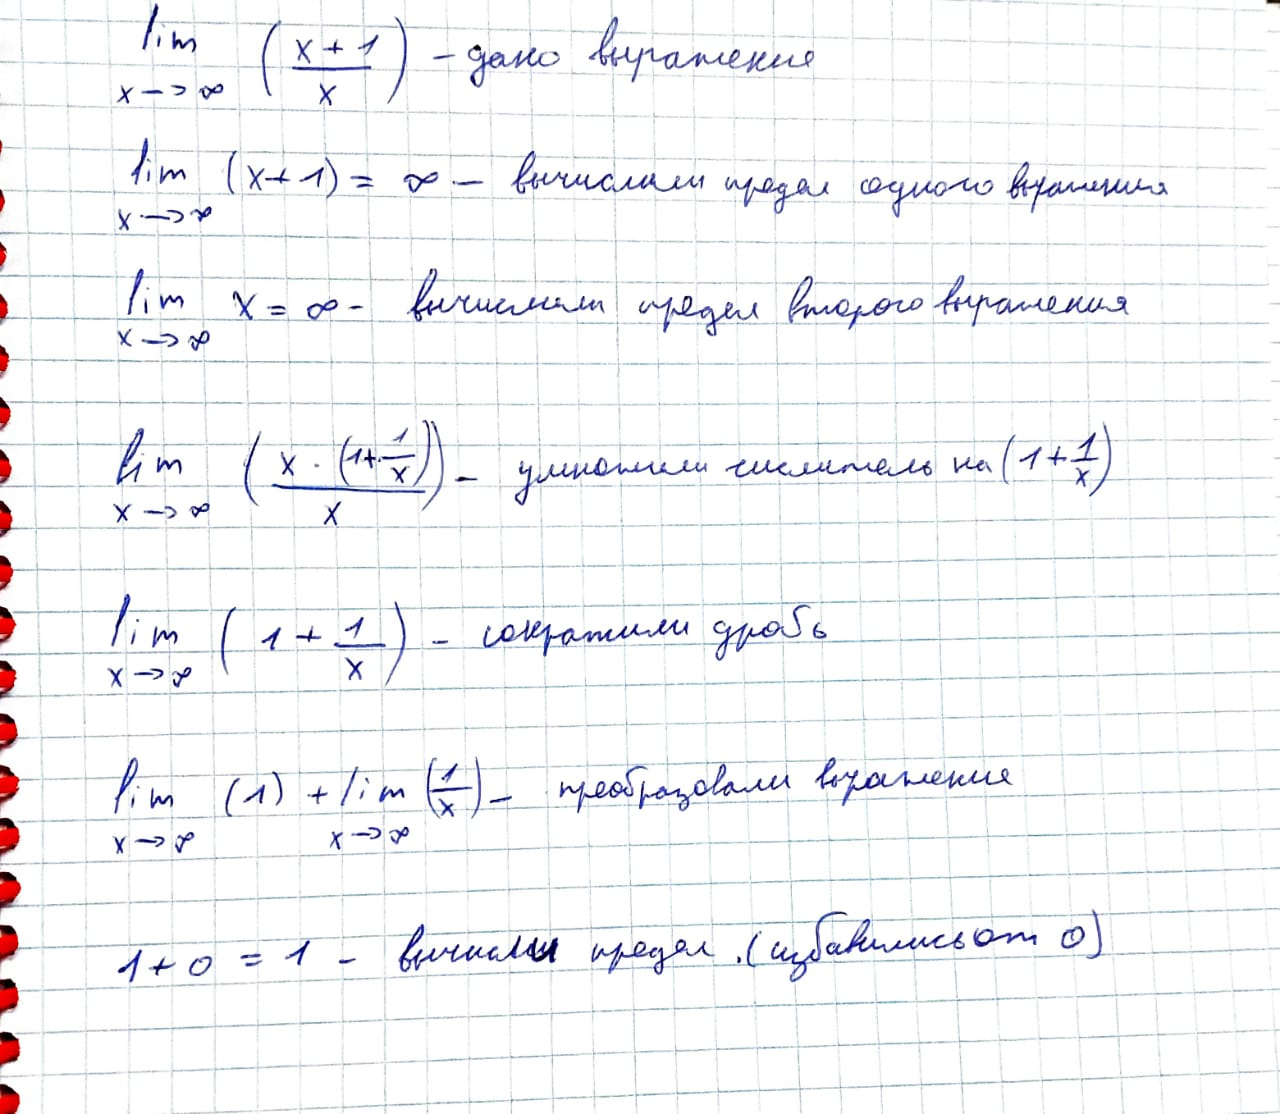 lim x→∞ ((x+1)/x) – дано выражение
lim x→∞ (x+1) = ∞ – вычислили предел одного выражения
lim x→∞ x = ∞ – вычислили предел второго выражения
lim x→∞ ((x·(1+1/x))/x) – умножили числитель на (1+1/x)
lim x→∞ (1+1/x) – сократили дробь
lim x→∞ (1) + lim x→∞ (1/x) – преобразовали выражение
1+0 = 1 – вычислили предел. (избавились от 0)